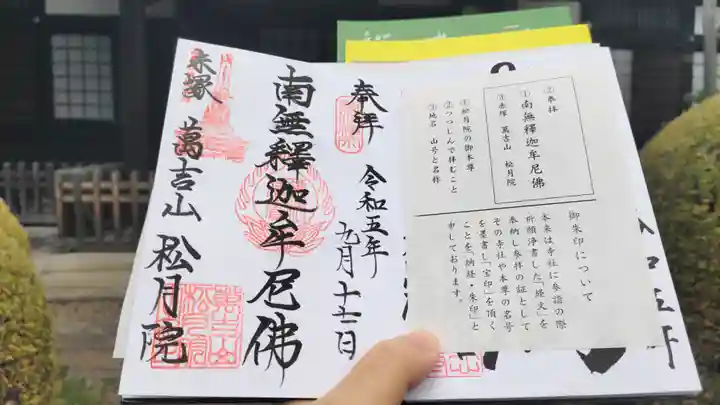 奉拝
令和五年
九月十七日
南無釋迦牟尼佛
赤塚
萬吉山
松月院
②奉拝
①南無釋迦牟尼佛
③赤塚 萬吉山 松月院
①松月院の御本尊
②つつしんで拝むこと
③地名 山号と名称
御朱印について
本来は寺社に参詣の際
祈願浄書した「経文」を
奉納し参拝の証として
その寺社や本尊の名号
を墨書し「宝印」を頂く
ことを「納経・朱印」と
申しております。